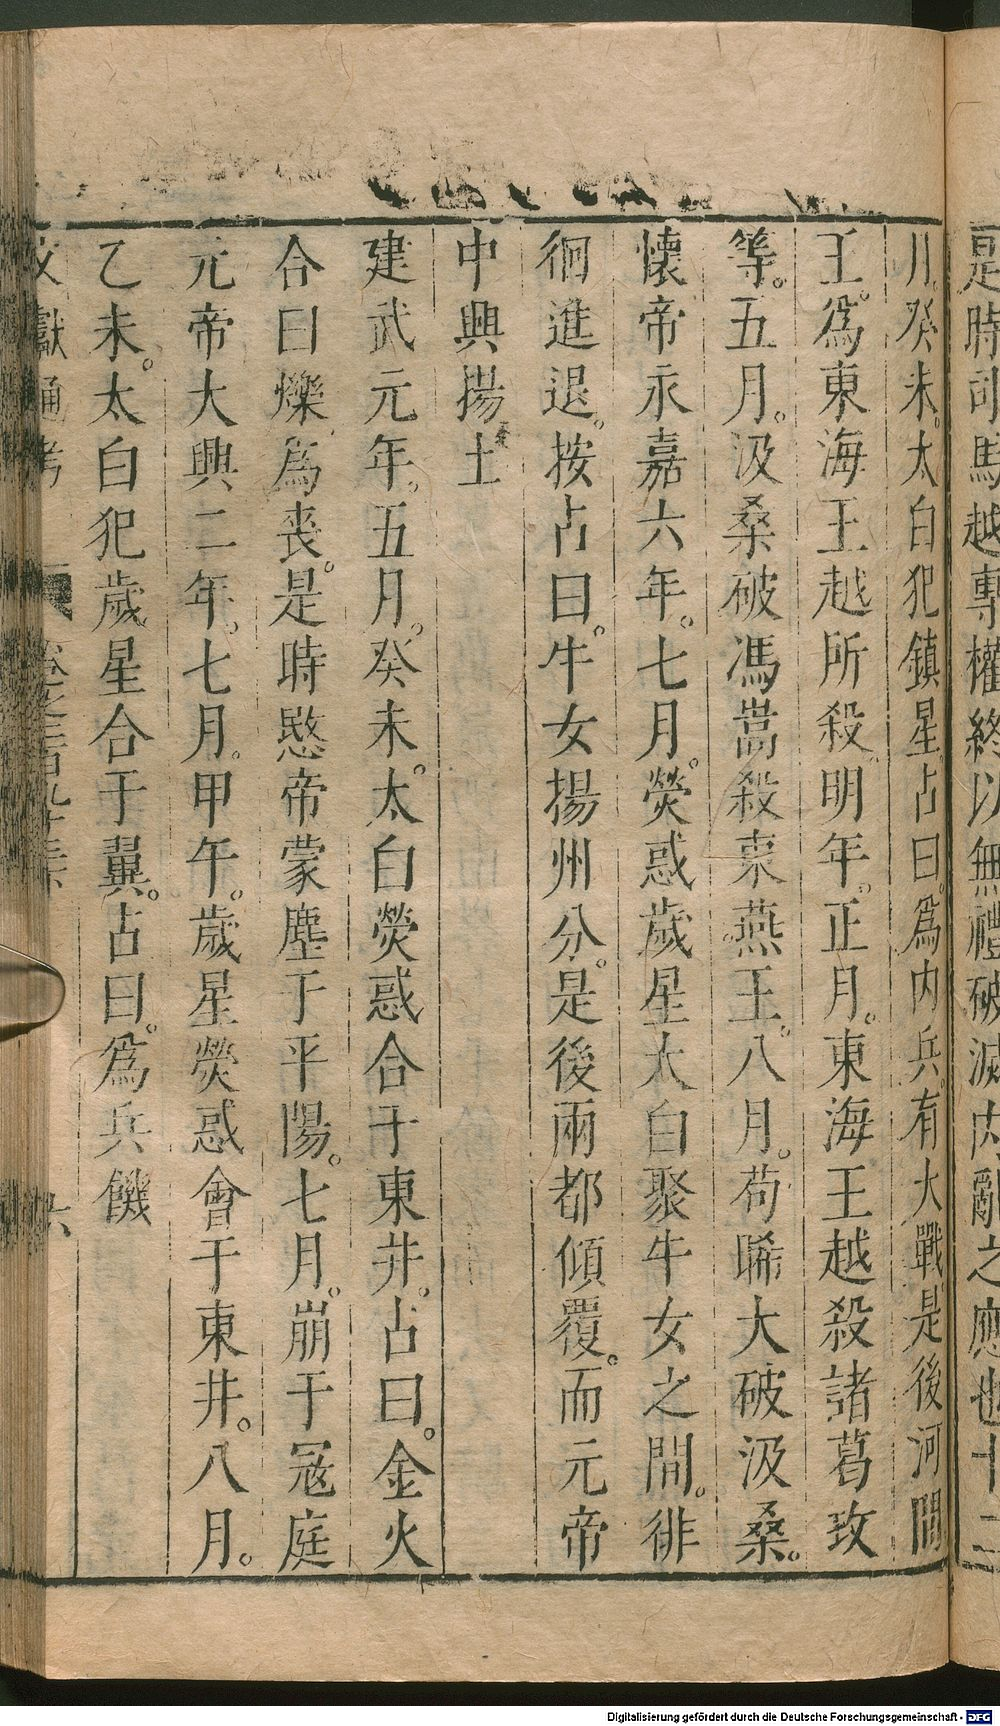 是時司馬越專權終以無禮破滅内亂之應也十二
川。癸未。太白犯鎮星。占曰。爲内兵。有大戰是後河間
王。爲東海王越所殺。明年。正月。東海王越殺諸葛玫
等。五月。汲桑破馮嵩殺東燕王。八月。苟晞大破汲桑。
懷帝永嘉六年。七月。熒惑歲星太白聚牛女之間。徘
徊進退。按占曰。牛女揚州分。是後兩都傾覆。而元帝
中興揚土
建武元年。五月。癸未。太白熒惑合于東井。占曰。金火
合曰爍。爲喪。是時愍帝蒙塵于平陽。七月。崩于冦庭
元帝大興二年。七月。甲午。歲星熒惑會于東井。八月。
乙未。太白犯歲星合于翼。占曰。爲兵饑
文獻通考 卷之二百九十三下 六
Digitalisierung gefördert durch die Deutsche Forschungsgemeinschaft - DFG